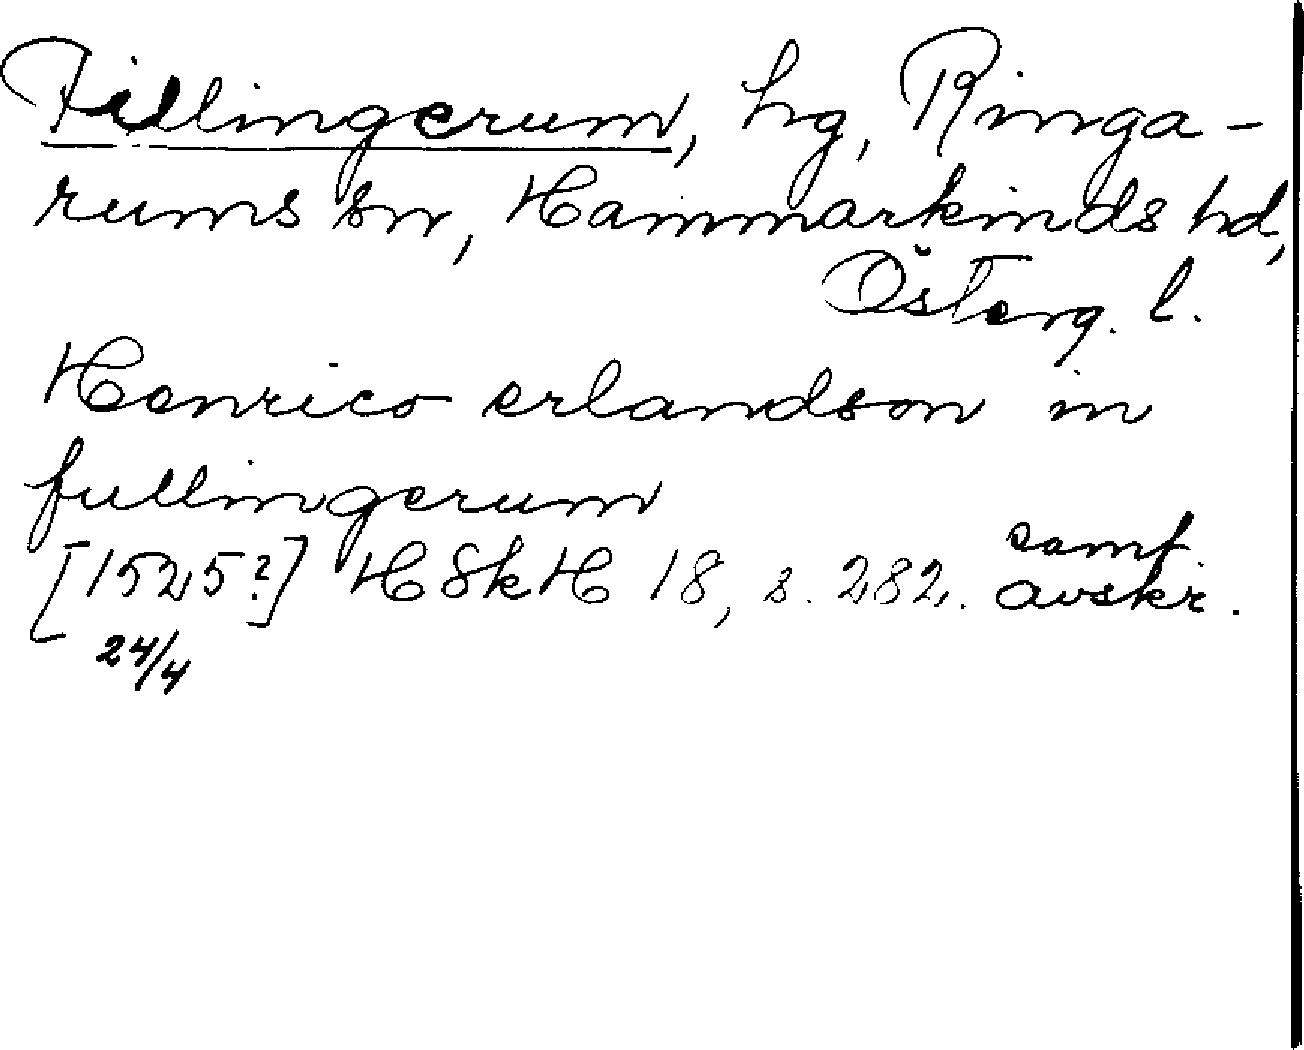 Fillingerum, hg, Ringa-
rums sn, Hammarkinds hd,
Österg. l.
Henrico erlandson in
fullingerum
[1525?] HSkH 18, s. 282. samt.
avskr.
24/4